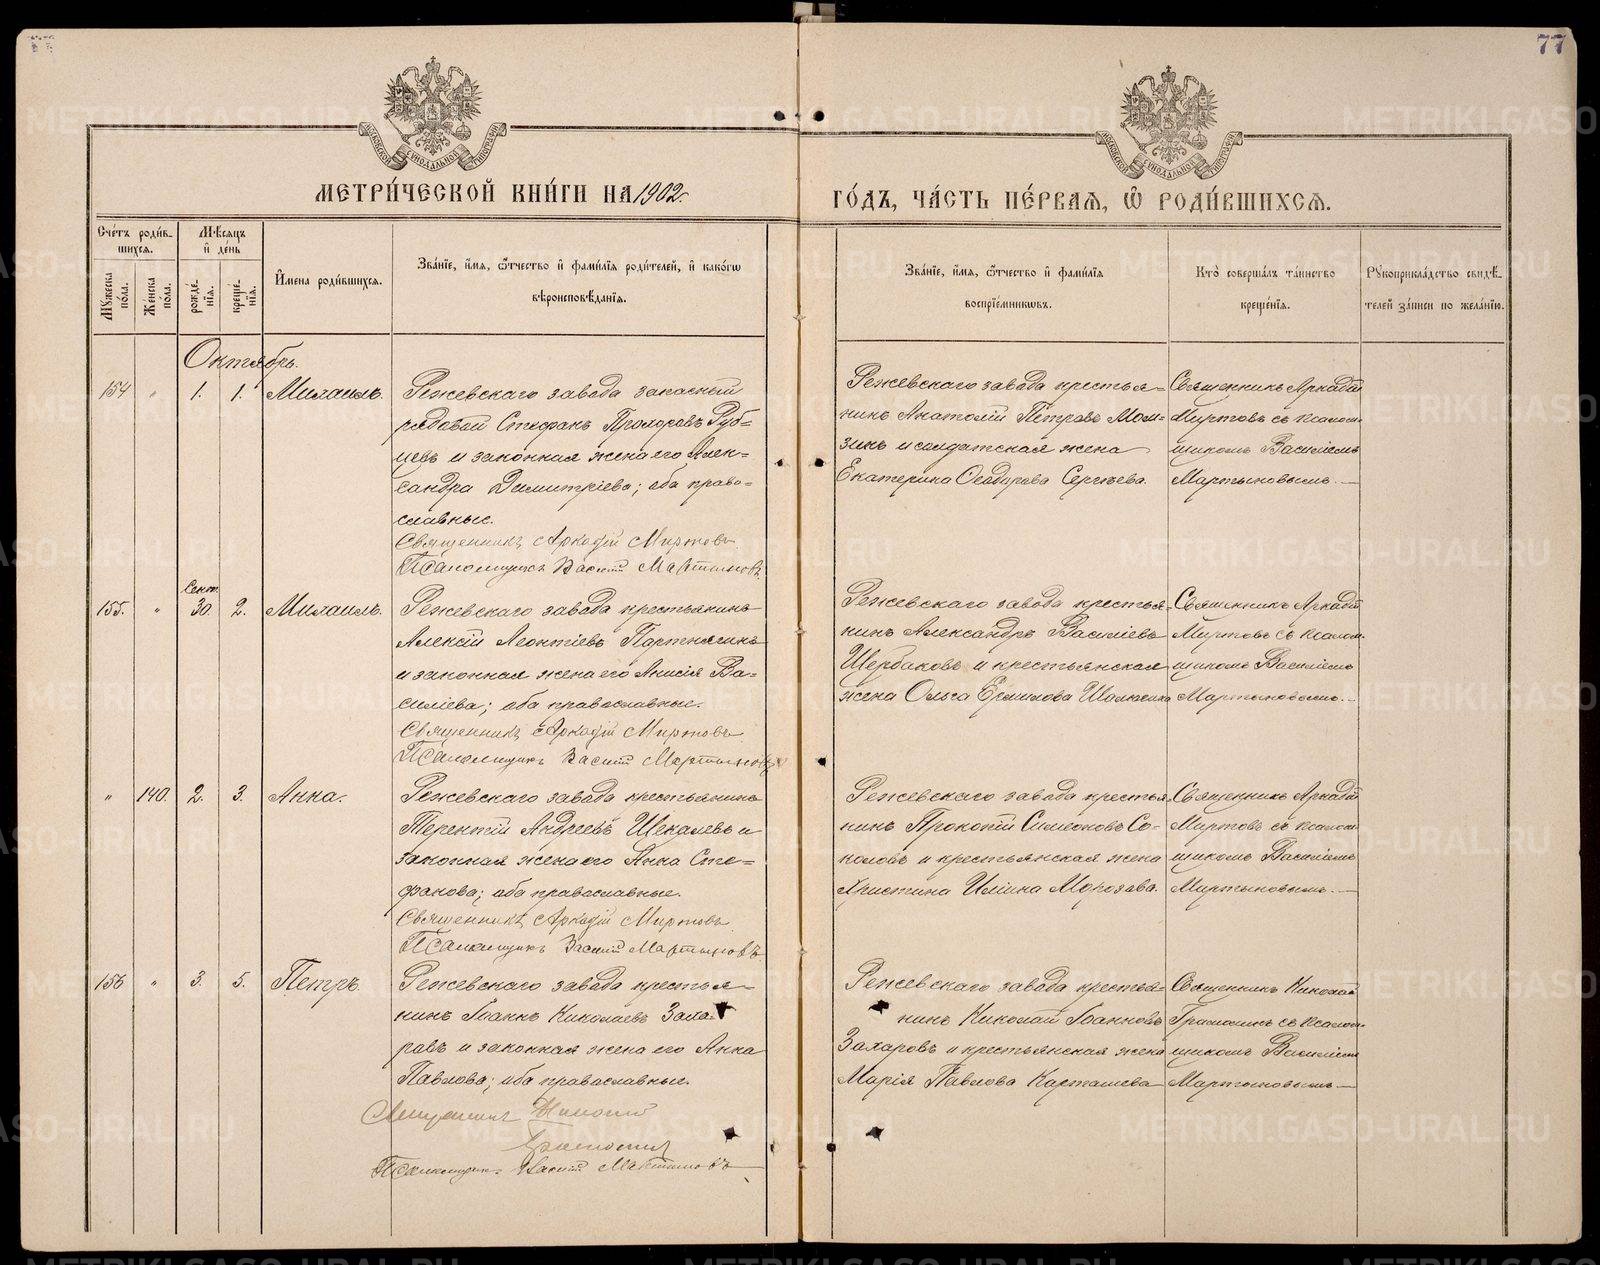 77
МЕТРИ́ЧЕСКОЙ КНИ́ГИ НА 1902 г.
ГО́ДЪ, ЧА́СТЬ ПЕ́РВАѦ, Ѽ РОДИ́ВШИХСѦ.
Счétъ роди́в-
шихся.
Мѣ́сяцъ
и҆ де́нь
Мꙋ́жеска по́ла.
Же́нска по́ла.
рожде́нїѧ.
креще́нїѧ.
И҆́мена роди́вшихсѧ.
Зва́нїе, и҆́мѧ, ѻ҆́тчество и҆ фами́лїѧ роди́телей, и҆ како́гѡ
вѣроисповѣ́данїѧ.
Зва́нїе, и҆́мѧ, ѻ҆́тчество и҆ фами́лїѧ
воспрїе́мникѡвъ.
Кто̀ соверша́лъ та́инство
креще́нїѧ.
Рꙋкоприкла́дство свидѣ́-
телей за́писи по жела́нїю.
Октябрь.
154 " 1. 1. Михаилъ.
Режевскаго завода запасный
рядовой Стефанъ Прохоровъ Руб=
цевъ и законная жена его Алек=
сандра Димитріева; оба право=
славные.
Священникъ Аркадій Миртовъ
Псаломщикъ Василій Мартыновъ
Режевскаго завода крестья=
нинъ Анатолій Петровъ Мом=
зинъ и солдатская жена
Екатерина Ѳеодорова Сергѣева.
Священникъ Аркадій
Миртовъ съ псалом-
щикомъ Василіемъ
Мартыновымъ.
155. " Сент. 30. 2. Михаилъ.
Режевскаго завода крестьянинъ
Алексій Леонтіевъ Партнягинъ
и законная жена его Анисія Ва=
силіева; оба православные.
Священникъ Аркадій Миртовъ
Псаломщикъ Василій Мартыновъ
Режевскаго завода крестья=
нинъ Александръ Василіевъ
Щербаковъ и крестьянская
жена Ольга Ермилова
Священникъ Аркадій
Миртовъ съ псалом-
щикомъ Василіемъ
Мартыновымъ.
" 140. 2. 3. Анна.
Режевскаго завода крестьянинъ
Терентій Андреевъ Щекалевъ и
законная жена его Анна Сте=
фанова; оба православные.
Священникъ Аркадій Миртовъ
Псаломщикъ Василій Мартыновъ
Режевскаго завода крестья=
нинъ Прокопій Симеоновъ Со=
коловъ и крестьянская жена
Христина Иліина Морозова.
Священникъ Аркадій
Миртовъ съ псалом-
щикомъ Василіемъ
Мартыновымъ.
156 " 3. 5. Петръ.
Режевскаго завода крестья=
нинъ Іоаннъ Николаевъ Заха=
ровъ и законная жена его Анна
Павлова; оба православные.
Священникъ Николай
Псаломщикъ Василій Мартыновъ
Режевскаго завода крестья=
нинъ Николай Іоанновъ
Захаровъ и крестьянская жена
Марія Павлова Карташева
Священникъ Николай
съ псалом-
щикомъ Василіемъ
Мартыновымъ
METRIKI.GASO-URAL.RU